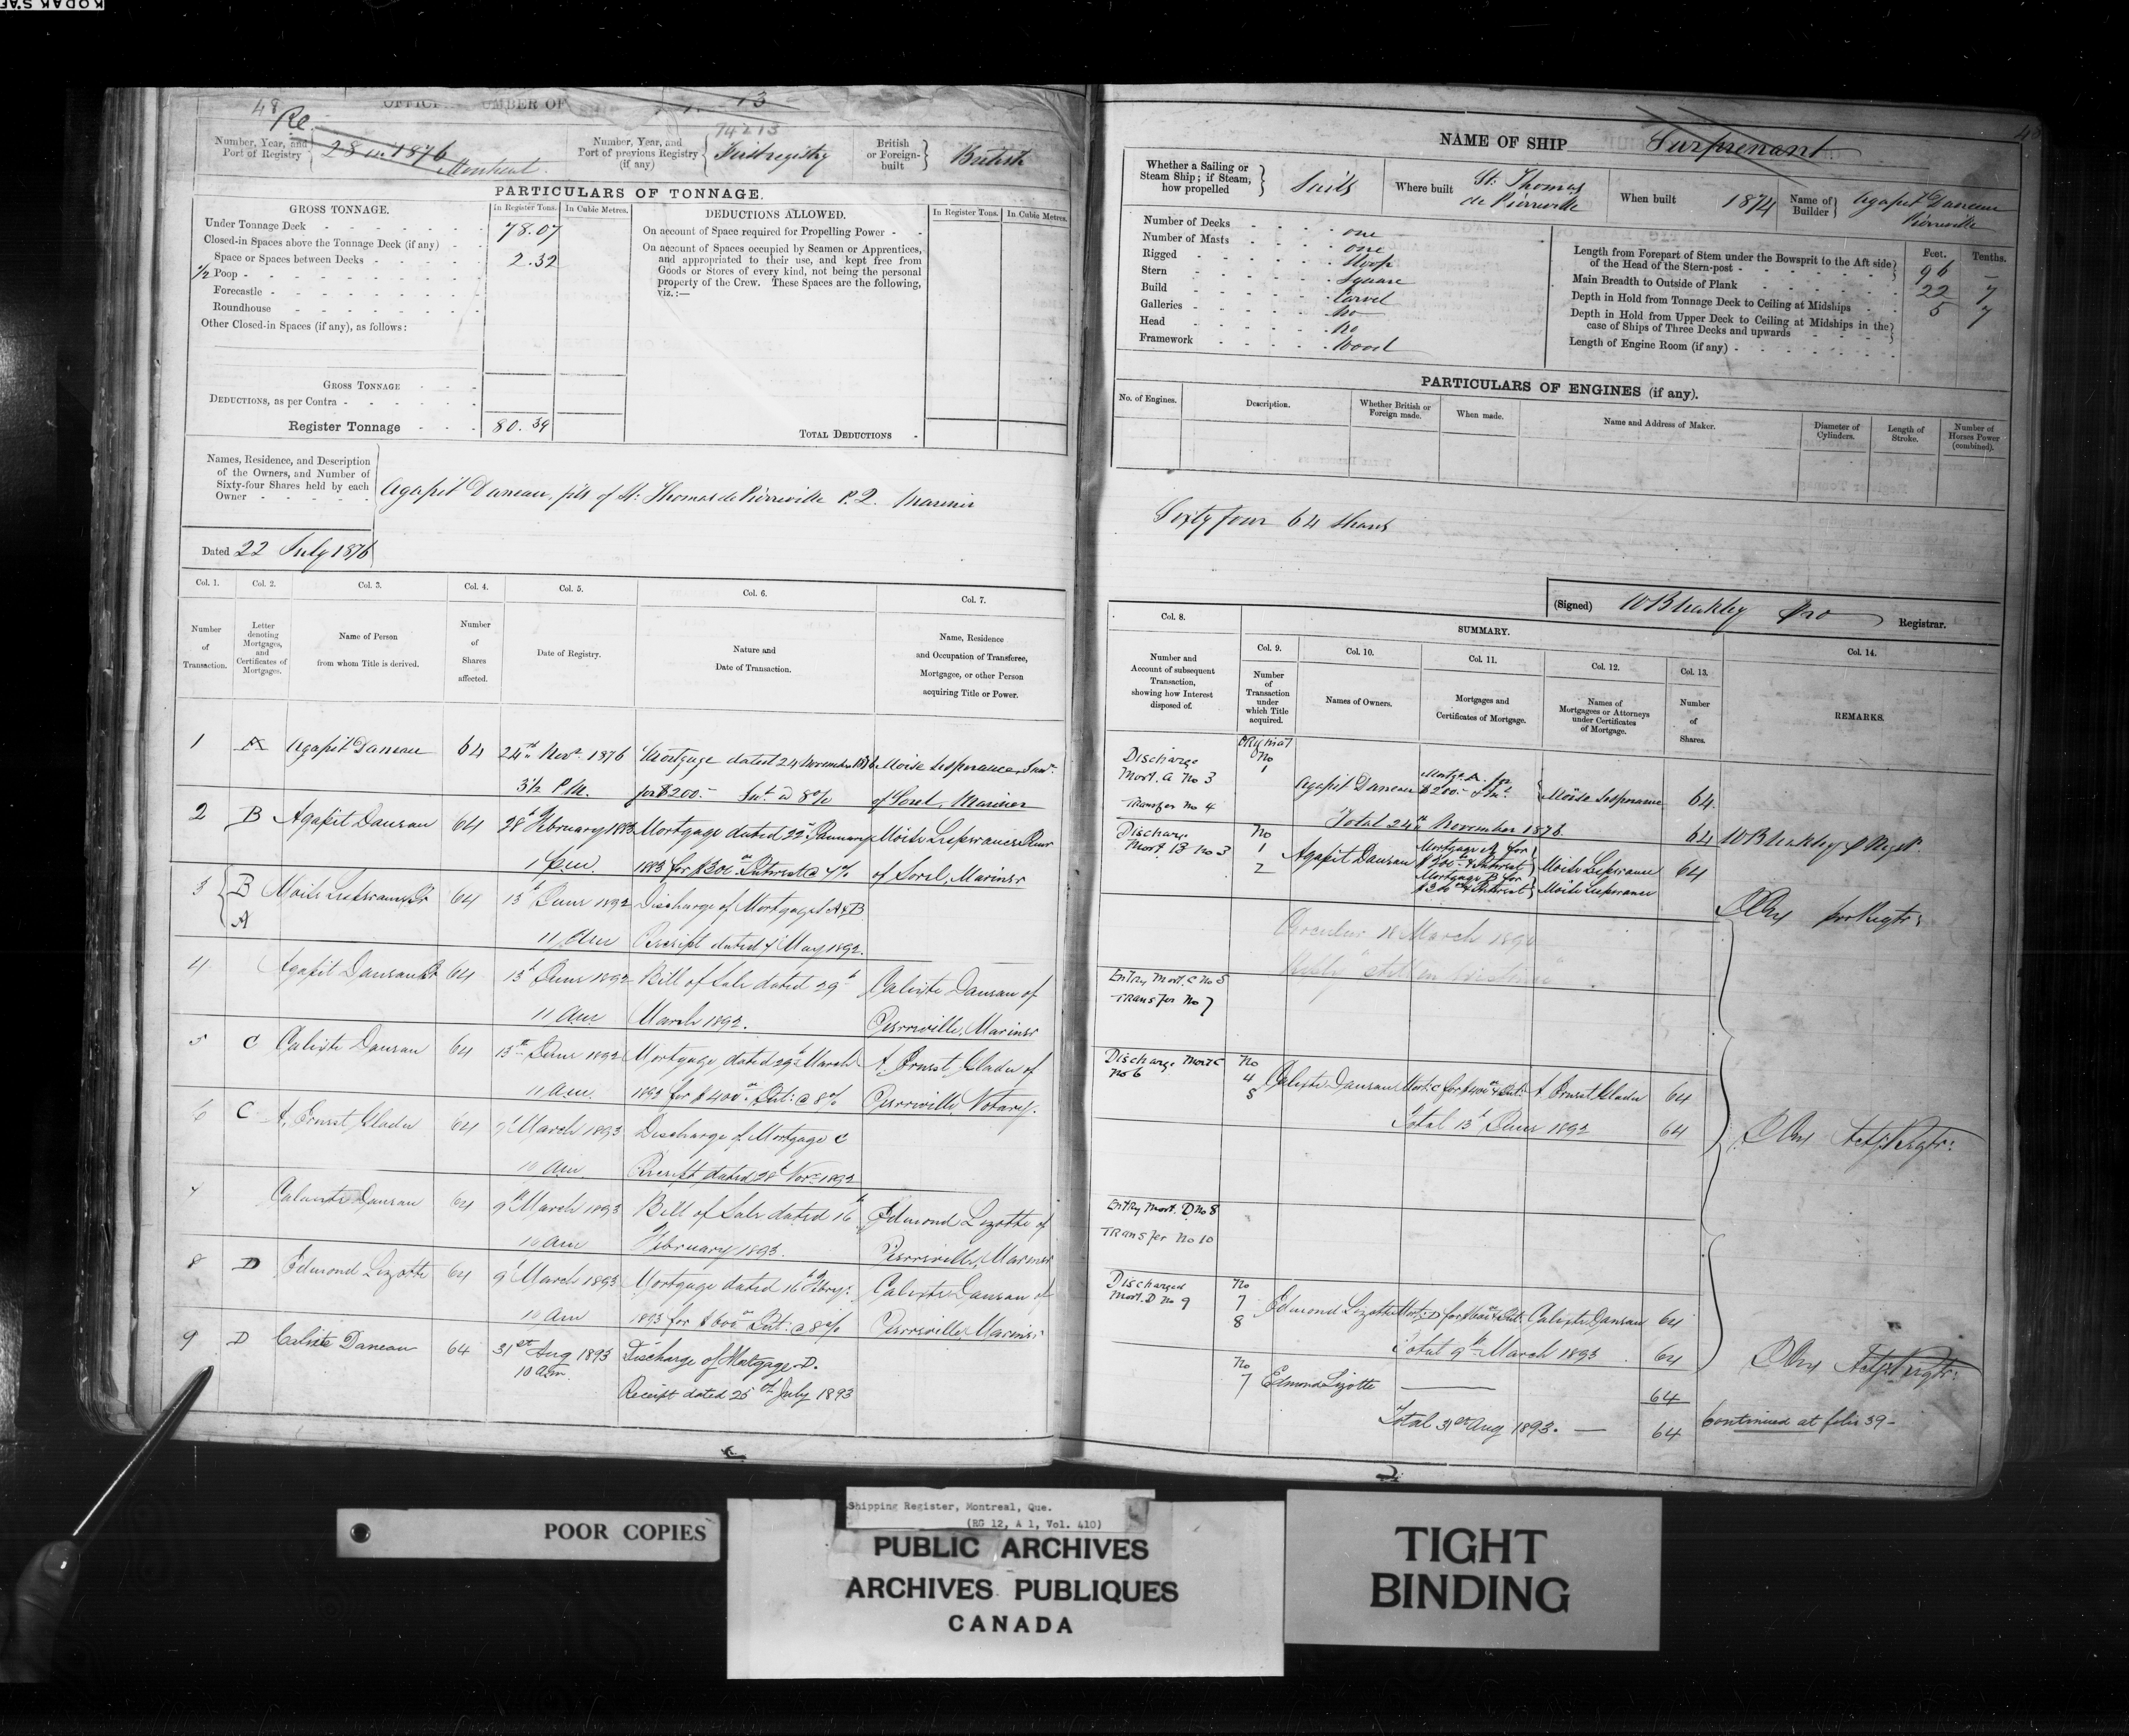 KODAK SAF
48
Re
OFFICI UMBER OF
13
74213
Number, Year, and Port of Registry
28 in 1876 Montreal
Number, Year, and Port of previous Registry (if any)
First registry
British or Foreign-built
British
PARTICULARS OF TONNAGE.
GROSS TONNAGE.
In Register Tons.
In Cubic Metres.
DEDUCTIONS ALLOWED.
In Register Tons.
In Cubic Metres.
Under Tonnage Deck 78.07
Closed-in Spaces above the Tonnage Deck (if any)
Space or Spaces between Decks 2.32
1/2 Poop
Forecastle
Roundhouse
Other Closed-in Spaces (if any), as follows:
On account of Space required for Propelling Power
On account of Spaces occupied by Seamen or Apprentices,
and appropriated to their use, and kept free from
Goods or Stores of every kind, not being the personal
property of the Crew. These Spaces are the following,
viz.:—
GROSS TONNAGE
DEDUCTIONS, as per Contra
Register Tonnage 80.39
TOTAL DEDUCTIONS
Names, Residence, and Description
of the Owners, and Number of
Sixty-four Shares held by each
Owner
Agapit Daneau, fils of St. Thomas de Pierreville P.Q. Mariner
Dated 22 July 1876
Col. 1. Col. 2. Col. 3. Col. 4. Col. 5. Col. 6. Col. 7.
Number of Transaction.
Letter denoting Mortgages, and Certificates of Mortgages.
Name of Person from whom Title is derived.
Number of Shares affected.
Date of Registry.
Nature and Date of Transaction.
Name, Residence and Occupation of Transferee, Mortgagee, or other Person acquiring Title or Power.
1 A Agapit Daneau 64 24th Novr. 1876 Mortgage dated 24 November 1876 Moise Lesperance, Senr.
3 1/2 P.M. for $200.- Int. @ 8 o/o of Sorel, Mariner
2 B Agapit Daneau 64 28th February 1883 Mortgage dated 22d January Moise Lesperance Senr
1 p.m. 1883 for $300 Interest @ 7% of Sorel, Mariner
3 B A Moise Lesperance Sr 64 13th June 1892 Discharge of Mortgages A & B
11 am Receipt dated 7 May 1892.
4 Agapit Daneau Sr 64 13th June 1892 Bill of Sale dated 29th Calixte Daneau of
11 am March 1892. Pierreville, Mariner
5 C Calixte Daneau 64 13th June 1892 Mortgage dated 29th March A. Ernest Gladu of
11 a.m. 1892 for $400.00 Int: @ 8% Pierreville Notary.
6 C A. Ernest Gladu 64 9th March 1893 Discharge of Mortgage C
10 am Receipt dated 28th Novr. 1892
7 Calixte Daneau 64 9th March 1893 Bill of Sale dated 16th Edmond Lizotte of
10 am February 1893. Pierreville, Mariner
8 D Edmond Lizotte 64 9th March 1893 Mortgage dated 16th Febry. Calixte Daneau of
10 am 1893 for $600.00 Int: @ 8% Pierreville Mariner
9 D Calixte Daneau 64 31st Aug 1893 Discharge of Mortgage D.
10 am.
Receipt dated 25th July 1893
NAME OF SHIP Surprenant
Whether a Sailing or Steam Ship; if Steam, how propelled
Sails
Where built
St. Thomas de Pierreville
When built 1874
Name of Builder
Agapit Daneau Pierreville
Number of Decks one
Number of Masts one
Rigged Sloop
Stern Square
Build Carvel
Galleries no
Head no
Framework Wood
Feet. Tenths.
Length from Forepart of Stem under the Bowsprit to the Aft side of the Head of the Stern-post 96 —
Main Breadth to Outside of Plank 22 7
Depth in Hold from Tonnage Deck to Ceiling at Midships 5 7
Depth in Hold from Upper Deck to Ceiling at Midships in the case of Ships of Three Decks and upwards
Length of Engine Room (if any)
PARTICULARS OF ENGINES (if any).
No. of Engines.
Description.
Whether British or Foreign made.
When made.
Name and Address of Maker.
Diameter of Cylinders.
Length of Stroke.
Number of Horses Power (combined).
Sixty four 64 shares
(Signed) Registrar.
Col. 8.
SUMMARY.
Col. 9. Col. 10. Col. 11. Col. 12. Col. 13. Col. 14.
Number and Account of subsequent Transaction, showing how Interest disposed of.
Number of Transaction under which Title acquired.
Names of Owners.
Mortgages and Certificates of Mortgage.
Names of Mortgagees or Attorneys under Certificates of Mortgage.
Number of Shares.
REMARKS.
Discharge Mort. A No 3
Transfer No 4
Original No 1
Agapit Daneau Mortge A. for $200.- & Int. Moise Lesperance 64
Total 24th November 1876. 64
Discharge Mort. B No 3
No 1 2 Agapit Daneau Mortgage A for $200 & Interest Moise Lesperance 64
Mortgage B for $300 & Interest Moise Lesperance
Circular 18 March 1890
Reply "still in existence"
Entry Mort. C No 5
Transfer No 7
Discharge Mort C No 6
No 4 5 Calixte Daneau Mort: C for $400 & Int: A. Ernest Gladu 64
Total 13th June 1892 64
Entry Mort. D No 8
Transfer No 10
Discharged Mort. D No 9
No 7 8 Edmond Lizotte Mort: D for $600 & Int: Calixte Daneau 64
Total 9th March 1893 64
No 7 Edmond Lizotte 64
Total 31st Aug 1893. — 64
Continued at folio 39-
POOR COPIES
Shipping Register, Montreal, Que.
(RG 12, A 1, Vol. 410)
PUBLIC ARCHIVES
ARCHIVES PUBLIQUES
CANADA
TIGHT
BINDING